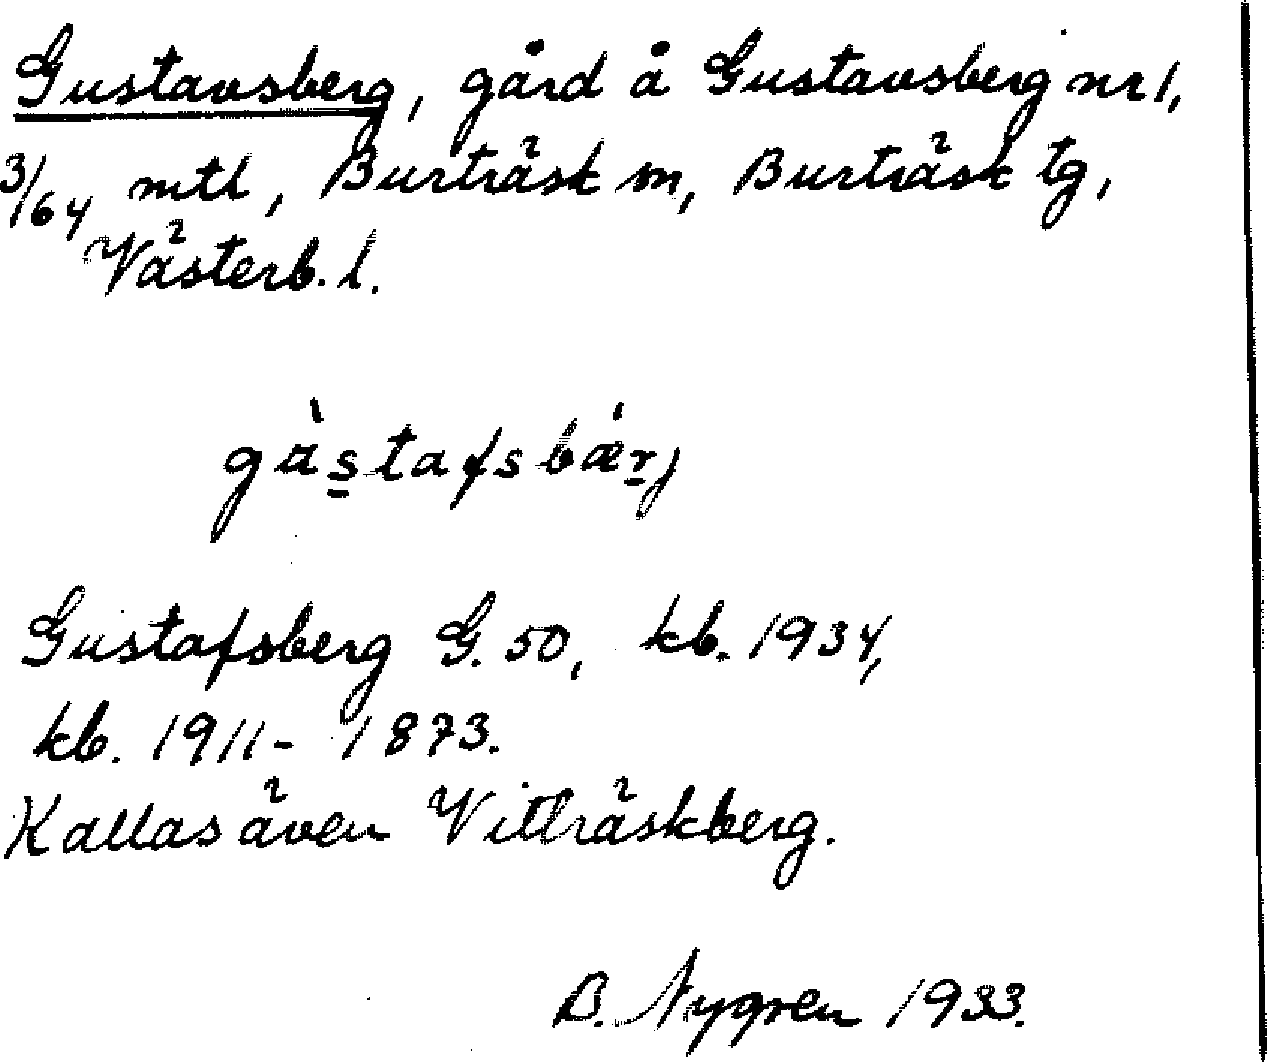 Gustavsberg, gård å Gustavsberg nr 1,
3/64 mtl, Burträsk sn, Burträsk tg,
Västerb. l.
gàstafsbǽrj
Gustafsberg G. 50, kb. 1934,
kb. 1911- 1873.
Kallas även Vitträskberg.
B. Nygren 1933.